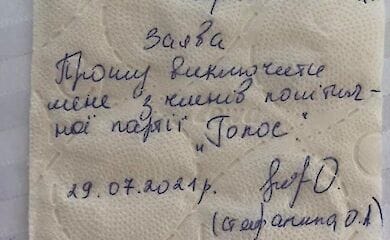 Заява
Прошу виключити
мене з членів політич-
ної партії
„Голос".
29.07.2021р.
(Стефанишина О.А)